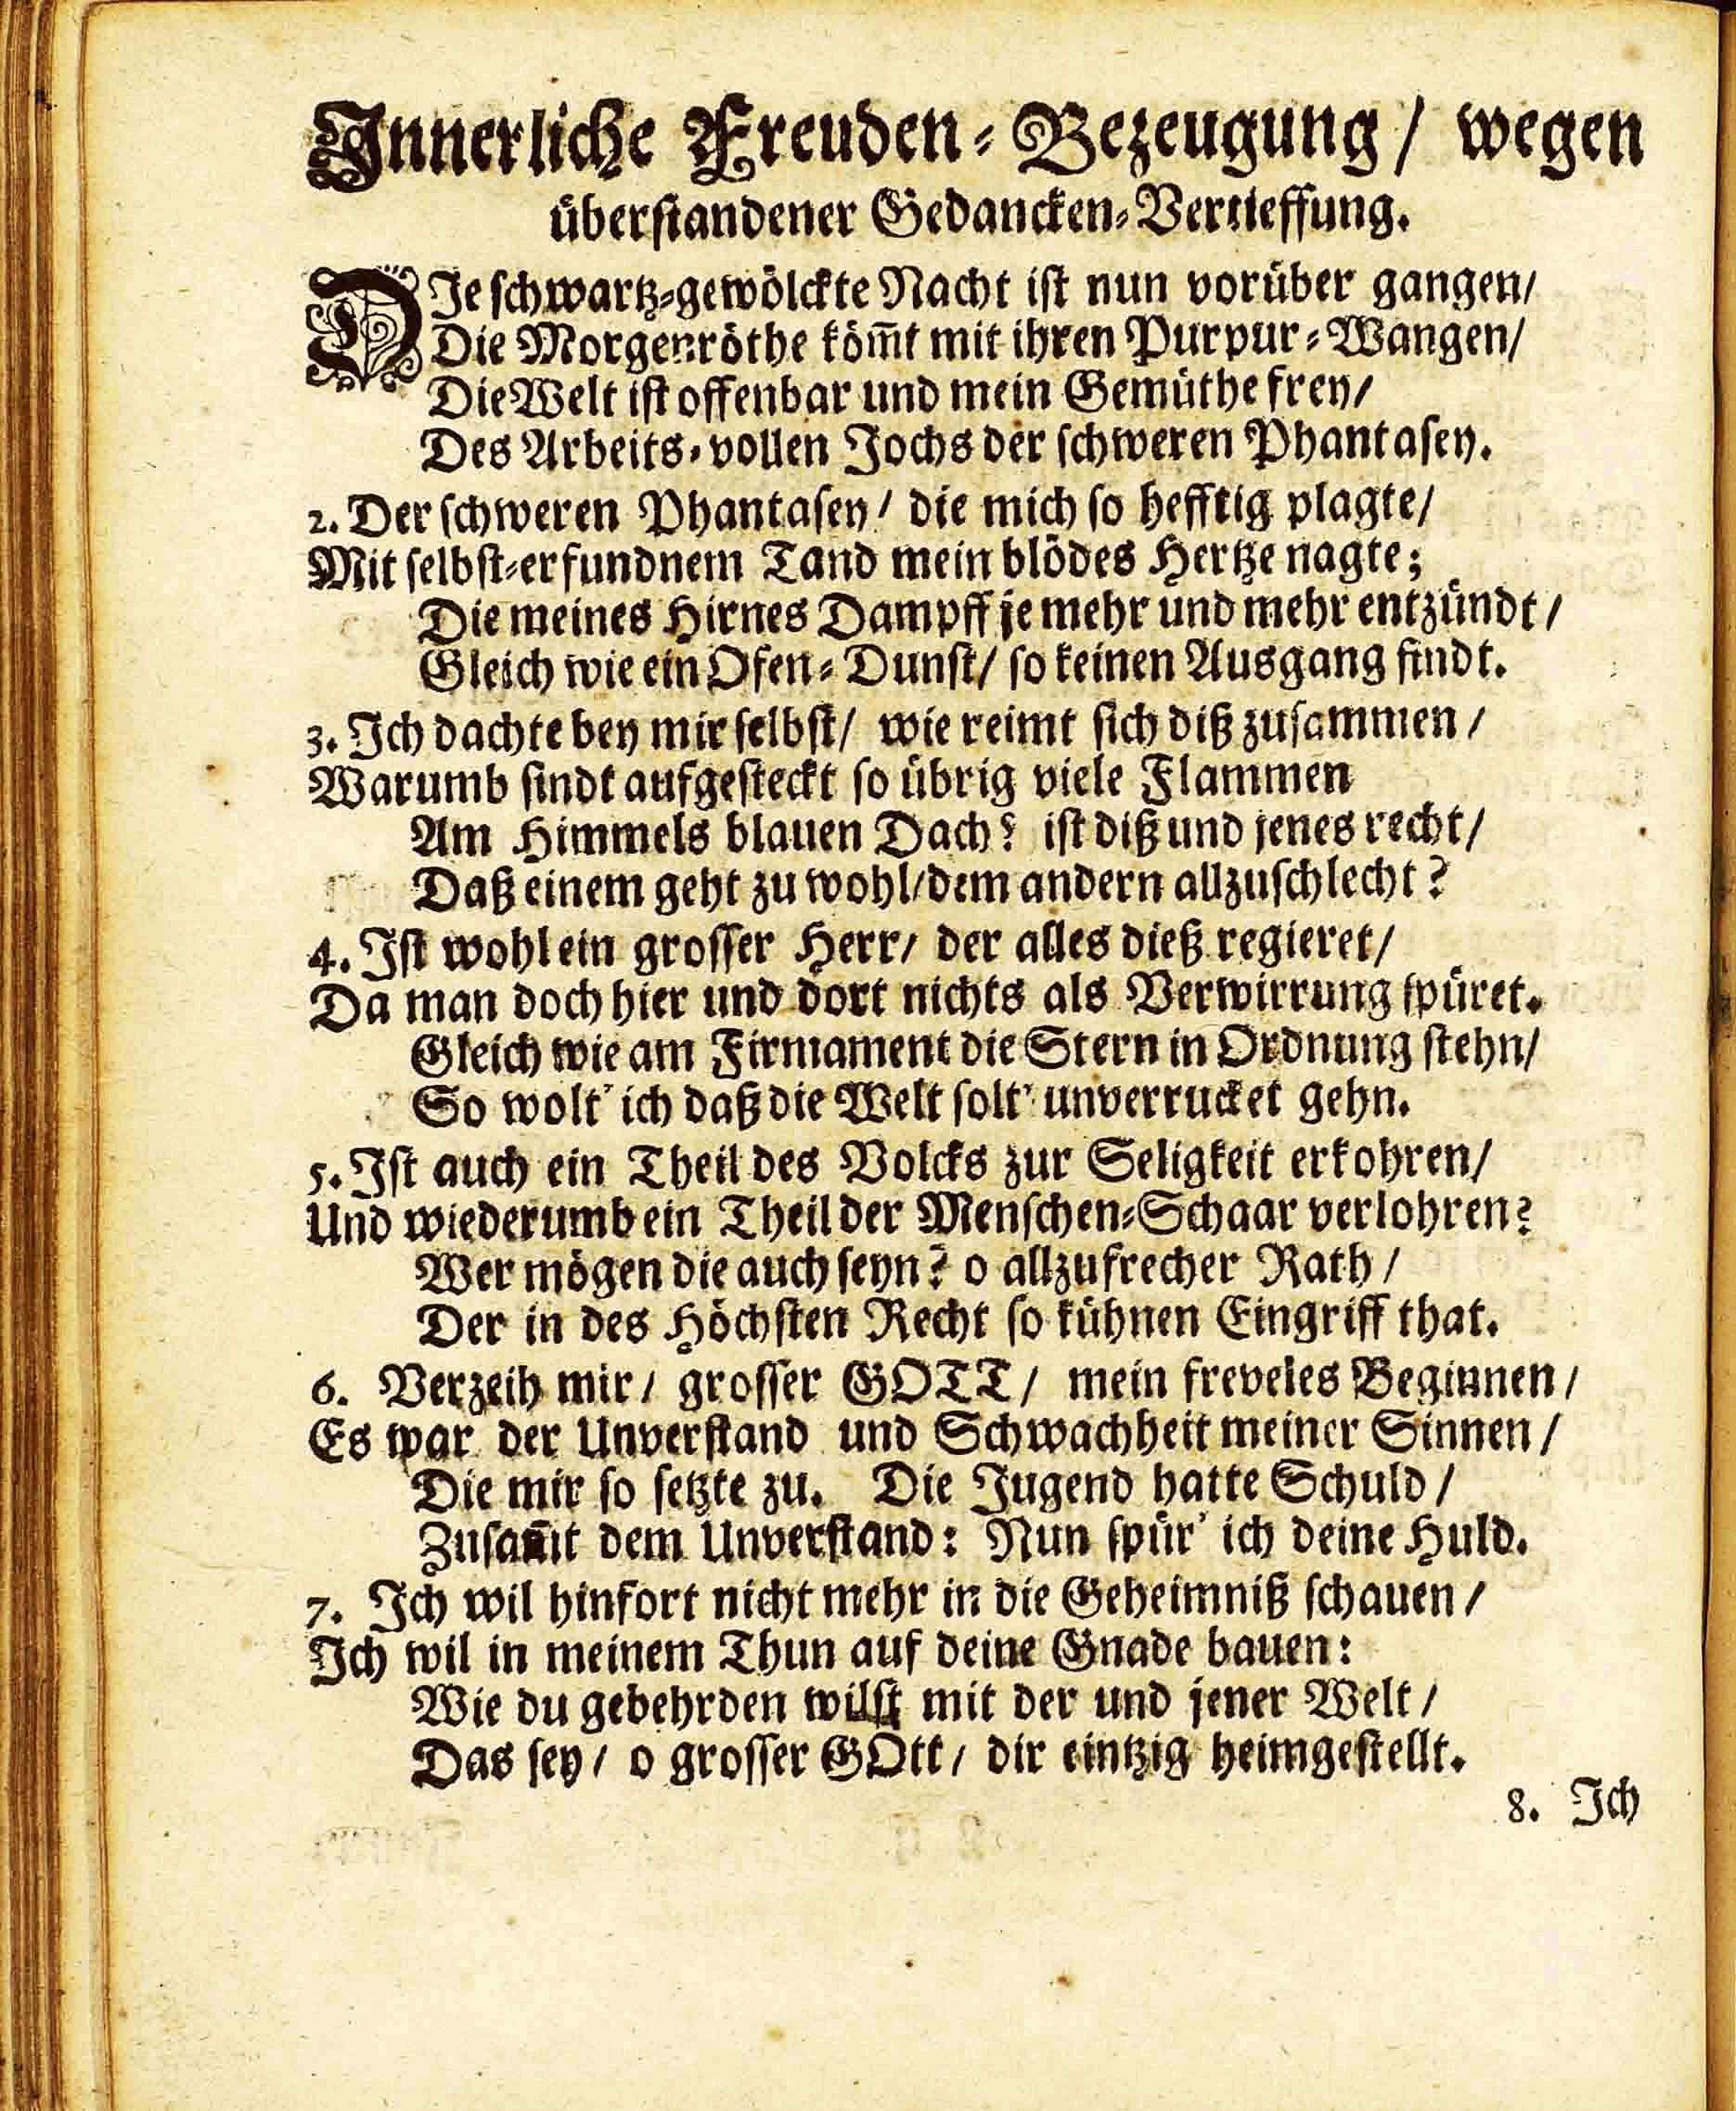 Innerliche Freuden-Bezeugung / wegen
überstandener Gedancken-Vertieffung.
DIe schwartz-gewölckte Nacht ist nun vorüber gangen/
Die Morgenröthe köm̅t mit ihren Purpur-Wangen/
Die Welt ist offenbar und mein Gemüthe frey/
Des Arbeits-vollen Jochs der schweren Phantasey.
2. Der schweren Phantasey / die mich so hefftig plagte/
Mit selbst-erfundnem Tand mein blödes Hertze nagte;
Die meines Hirnes Dampff je mehr und mehr entzündt /
Gleich wie ein Ofen-Dunst/ so keinen Ausgang findt.
3. Ich dachte bey mir selbst/ wie reimt sich diß zusammen /
Warumb sindt aufgesteckt so übrig viele Flammen
Am Himmels blauen Dach? ist diß und jenes recht/
Daß einem geht zu wohl/dem andern allzuschlecht?
4. Ist wohl ein grosser Herr/ der alles dieß regieret/
Da man doch hier und dort nichts als Verwirrung spüret.
Gleich wie am Firmament die Stern in Ordnung stehn/
So wolt' ich daß die Welt solt' unverrucket gehn.
5. Ist auch ein Theil des Volcks zur Seligkeit erkohren/
Und wiederumb ein Theil der Menschen-Schaar verlohren?
Wer mögen die auch seyn? o allzufrecher Rath /
Der in des Höchsten Recht so kühnen Eingriff that.
6. Verzeih mir / grosser GOTT / mein freveles Beginnen /
Es war der Unverstand und Schwachheit meiner Sinnen /
Die mir so setzte zu. Die Jugend hatte Schuld /
Zusam̅t dem Unverstand: Nun spür' ich deine Huld.
7. Ich wil hinfort nicht mehr in die Geheimniß schauen /
Ich wil in meinem Thun auf deine Gnade bauen:
Wie du gebehrden wilst mit der und jener Welt /
Das sey / o grosser GOtt / dir eintzig heimgestellt.
8. Ich